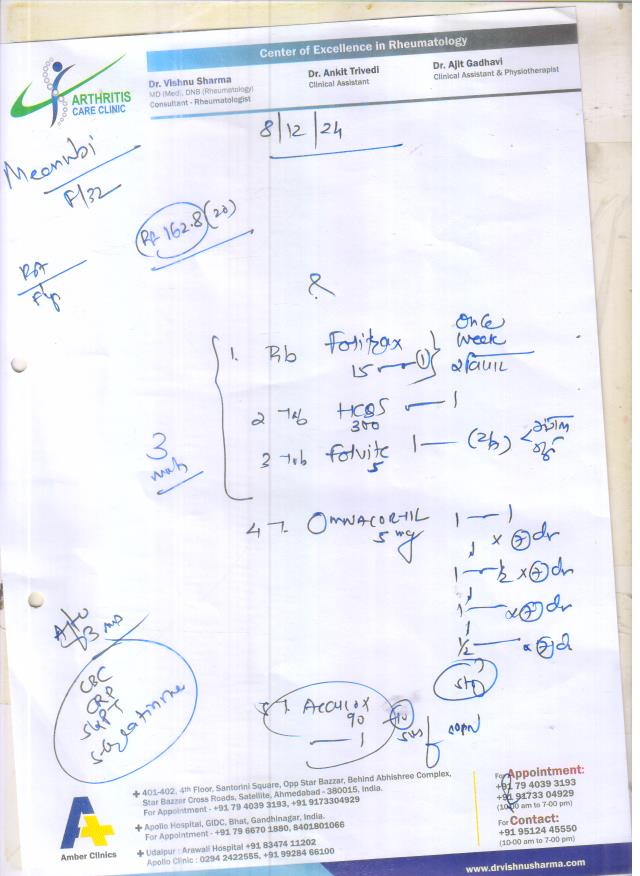 Center of Excellence in Rheumatology
ARTHRITIS
CARE CLINIC
Dr. Vishnu Sharma
MD (Med), DNB (Rheumatology)
Consultant - Rheumatologist
Dr. Ankit Trivedi
Clinical Assistant
Dr. Ajit Gadhavi
Clinical Assistant & Physiotherapist
8/12/24
F/32
RF 162.8 (20)
RA
1. Folitrax 15 (1) Once week
2 Tab HCQS 300 1
3 Tab Folvite 5 1 (2/w)
3
4 T. OMNACORTIL 5 mg 1 — 1
x 7 d
1 — 1/2 x 7 d
1 — x 7 d
1/2 — x 7 d
Stop
3
CBC
CRP
SGPT
S. Creatinine
90
1
SOS
+ 401-402, 4th Floor, Santorini Square, Opp Star Bazzar, Behind Abhishree Complex,
Star Bazzar Cross Roads, Satellite, Ahmedabad - 380015, India.
For Appointment - +91 79 4039 3193, +91 9173304929
+ Apollo Hospital, GIDC, Bhat, Gandhinagar, India.
For Appointment - +91 79 6670 1880, 8401801066
+ Udaipur : Arawali Hospital +91 83474 11202
Apollo Clinic : 0294 2422555, +91 99284 66100
A+
Amber Clinics
For Appointment:
+91 79 4039 3193
+91 91733 04929
(10:00 am to 7-00 pm)
For Contact:
+91 95124 45550
(10-00 am to 7-00 pm)
www.drvishnusharma.com